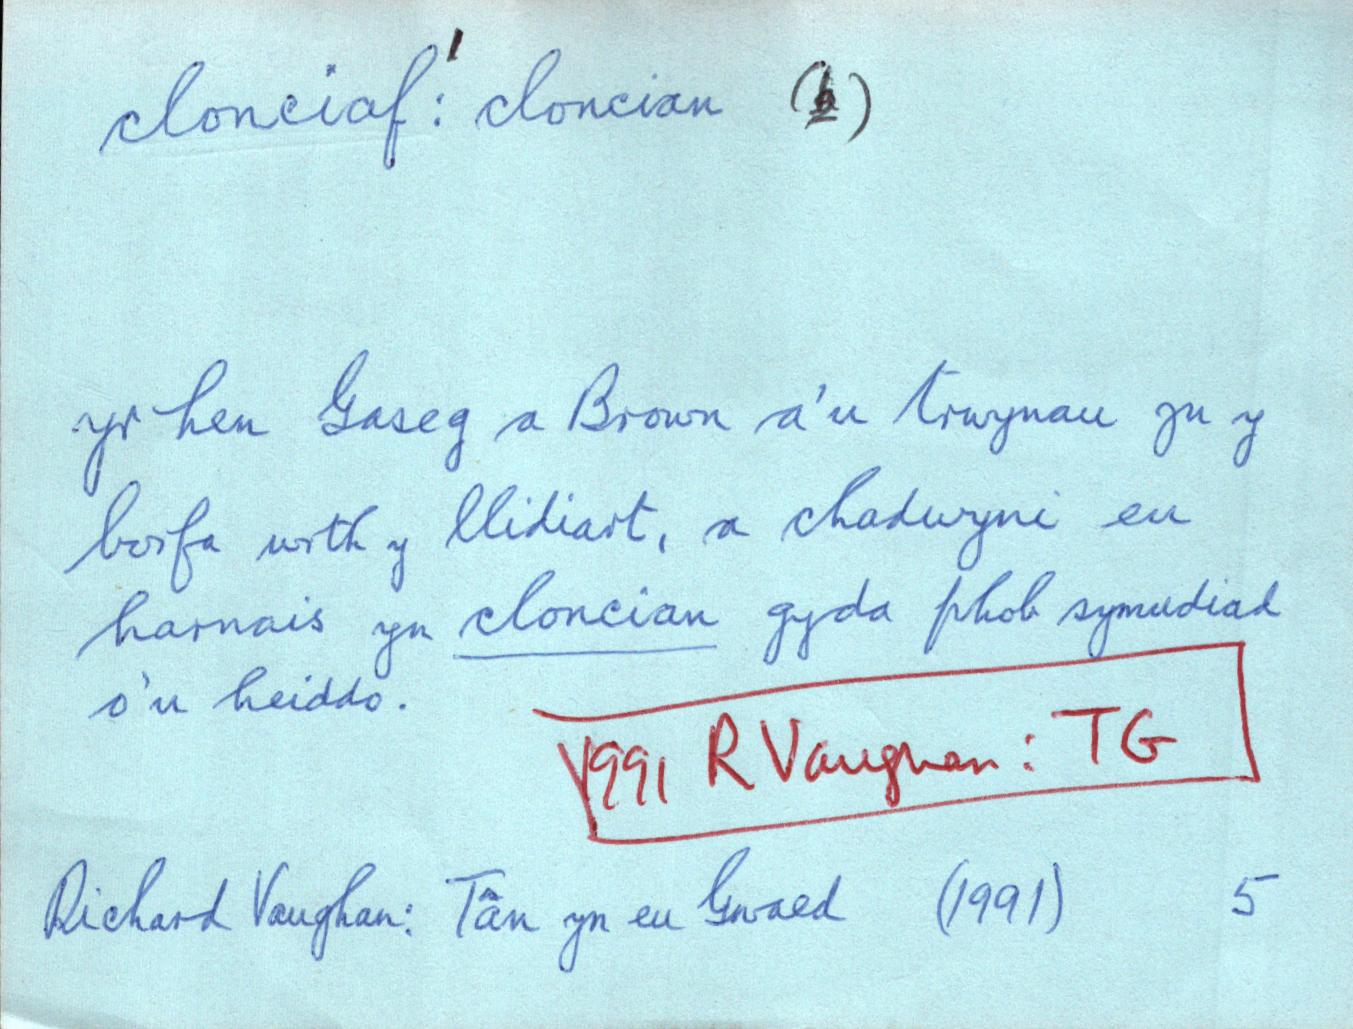 clonciaf:¹ cloncian (b)
yr hen Gaseg a Brown a'u trwynau yn y
borfa wrth y llidiart, a chadwyni eu
harnais yn cloncian gyda phob symudiad
o'u heiddo.
1991 R Vaughan: TG
Richard Vaughan: Tân yn eu Gwaed (1991) 5